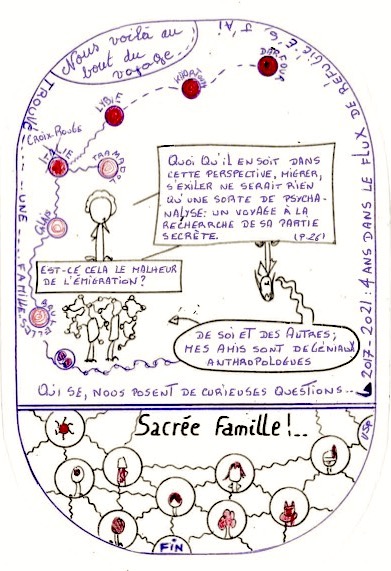 Nous voilà au
bout du
voyage...
DARFOUR
KHARTOUM
LYBIE
CROIX-ROUGE
ITALIE
TRAMADOL
CALAIS
QUOI QU'IL EN SOIT DANS
CETTE PERSPECTIVE, MIGRER,
S'EXILER NE SERAIT RIEN
QU'UNE SORTE DE PSYCHA-
NALYSE: UN VOYAGE À LA
RECHERRCHE DE SA PARTIE
SECRÈTE. (P.26)
EST-CE CELA LE MALHEUR
DE L'ÉMIGRATION?
DE SOI ET DES AUTRES;
MES AMIS SONT DE GÉNIAUX
ANTHROPOLOGUES
QUI SE, NOUS POSENT DE CURIEUSES QUESTIONS...
2017-2021: 4 ANS DANS LE FLUX DE RÉFUGIÉ.E.S, J'AI
TROUVÉ..... UNE..... FAMILLE
Sacrée Famille!..
FIN